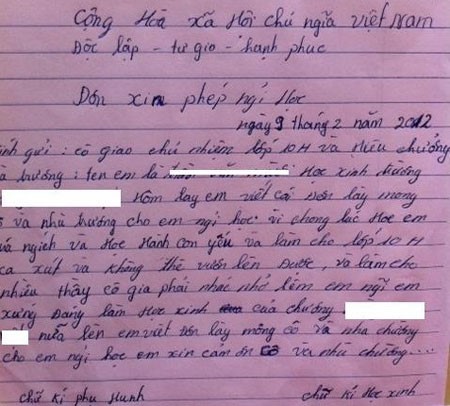 Cộng Hòa xã Hôi chủ ngĩa việt Nam
Dộc lập - tư gio - hạnh phuc
Dơn xin phép ngỉ Học
Ngày 9 tháng 2 năm 2012
ính gửi : cô giao chủ nhiêm lớp 10 H và Hiêu chưởng
à trương : ten em là Học xinh trường
Hôm lay em viết cá Dơn lây mong
và nhà trương cho em ngỉ học vì chong lúc Học em
uá ngich và Học Hành con yếu và lăm cho lớp 10 H
ca xút và không thẻ vươn lên Dươc, và lăm cho
nhiêu thầy cô gia phải nhăc nhở lêm em ngĩ em
xưng Dang lăm Học xinh của chương
nưa lên em viết Dơn lây mông cô và nha chương
cho em ngỉ học em xin cảm ơn cô và nhà chương....
chữ kí phu Huynh chữ kí Học xinh